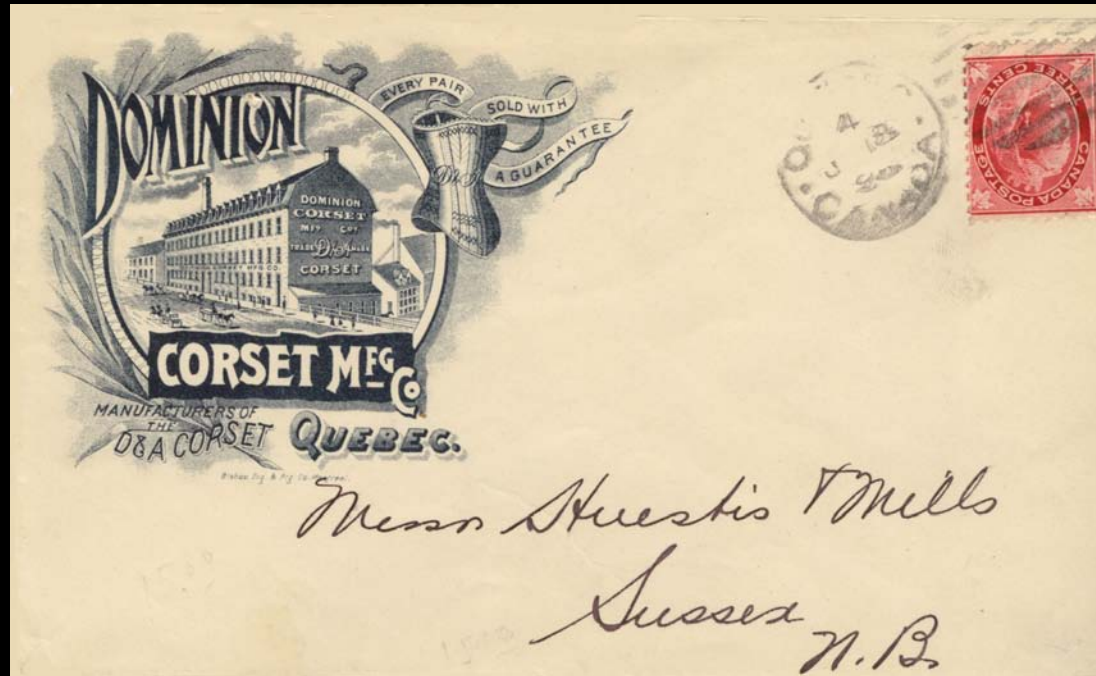 DOMINION
EVERY PAIR
SOLD WITH
A GUARANTEE
D&A
DOMINION
CORSET
MFG COY
TRADE D&A MARK
CORSET
CORSET MFG CO.
CORSET MFG Co.
MANUFACTURERS OF
THE
D&A CORSET
QUEBEC.
Bishop Eng. & Ptg. Co. Montreal.
4
CANADA
CANADA POSTAGE
THREE CENTS
Messrs Huestis & Mills
Sussex
N.B.